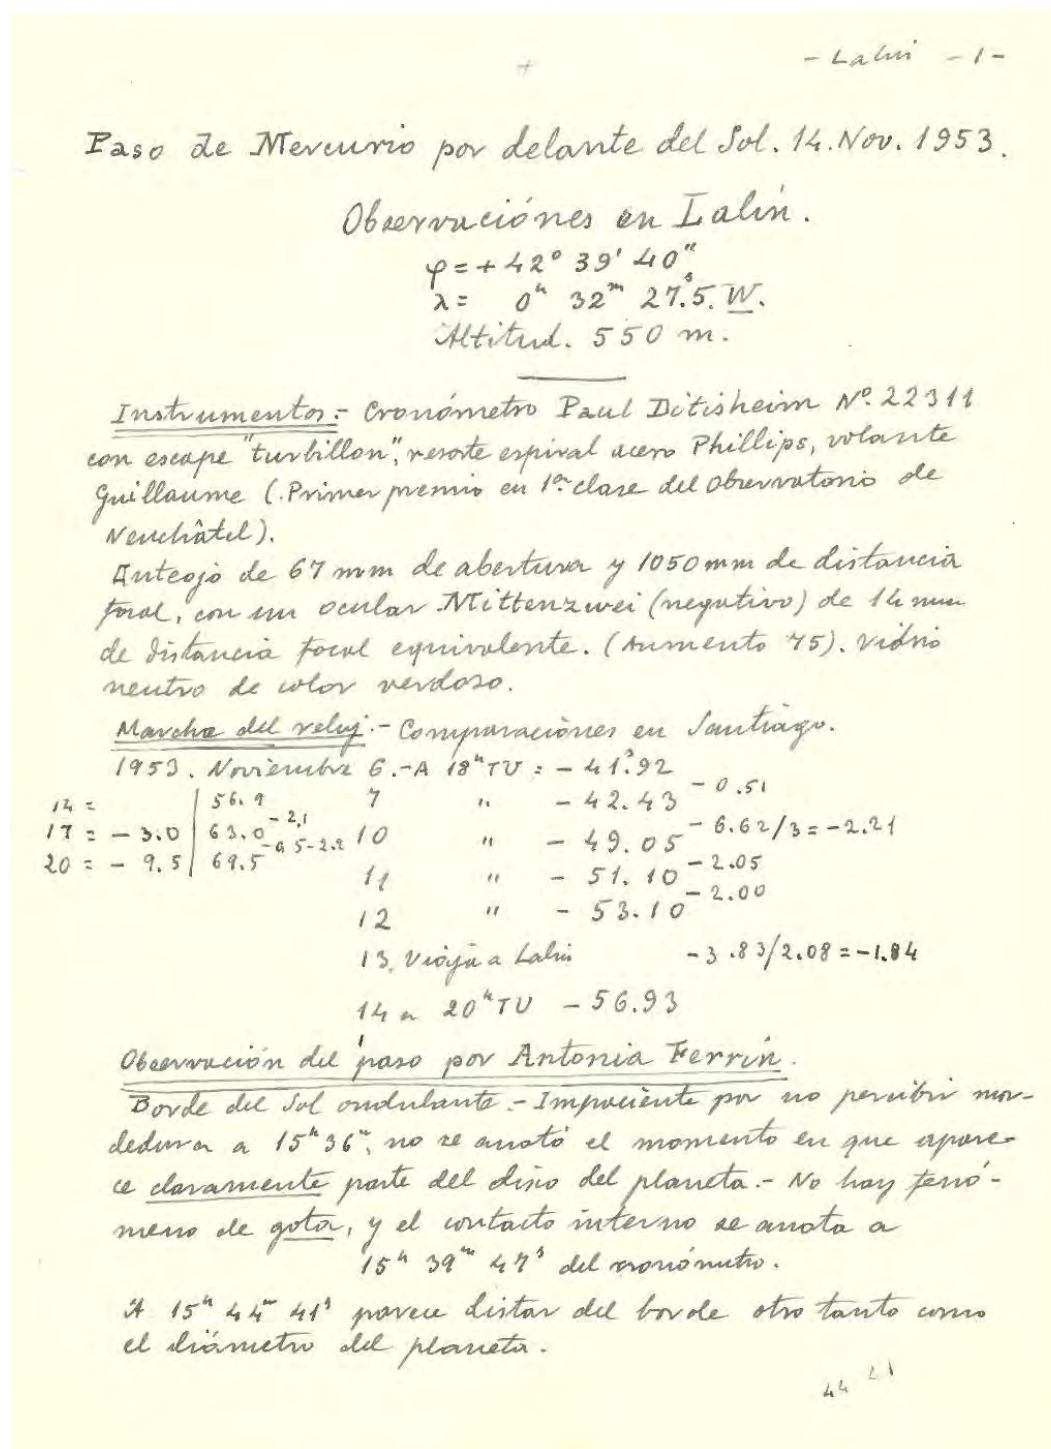 - Lalin - 1 -
Paso de Mercurio por delante del Sol. 14. Nov. 1953.
Observaciónes en Lalín.
φ = + 42° 39' 40"
λ = 0ʰ 32ᵐ 27ˢ.5. W.
Altitud. 550 m.
Instrumentos:- Cronómetro Paul Ditisheim Nº. 22311
con escape "turbillon", resorte espiral acero Phillips, volante
Guillaume (Primer premio en 1ª clase del Observatorio de
Neuchâtel).
Anteojo de 67 mm de abertura y 1050 mm de distancia
focal, con un ocular Mittenzwei (negativo) de 14 mm
de distancia focal equivalente. (Aumento 75). Vidrio
neutro de color verdoso.
Marcha del reloj.- Comparaciónes en Santiago.
1953. Noviembre 6.- A 18ʰ TU = - 41ˢ.92
7 " - 42.43 - 0.51
14 = | 56.9
17 = - 3.0 | 63.0 - 2.1
20 = - 9.5 | 69.5 - 6.5 - 2.2
10 " - 49.05 - 6.62/3 = -2.21
11 " - 51.10 - 2.05
12 " - 53.10 - 2.00
13. Viaje a Lalin - 3.83/2.08 = -1.84
14 a 20ʰ TU - 56.93
Observación del paso por Antonia Ferrín.
Borde del Sol ondulante.- Impaciente por no percibir mor-
dedura a 15ʰ 36ᵐ, no se anotó el momento en que apare-
ce claramente parte del disco del planeta.- No hay fenó-
meno de gota, y el contacto interno se anota a
15ʰ 39ᵐ 47ˢ del cronómetro.
A 15ʰ 44ᵐ 41ˢ parece distar del borde otro tanto como
el diámetro del planeta.
44 21